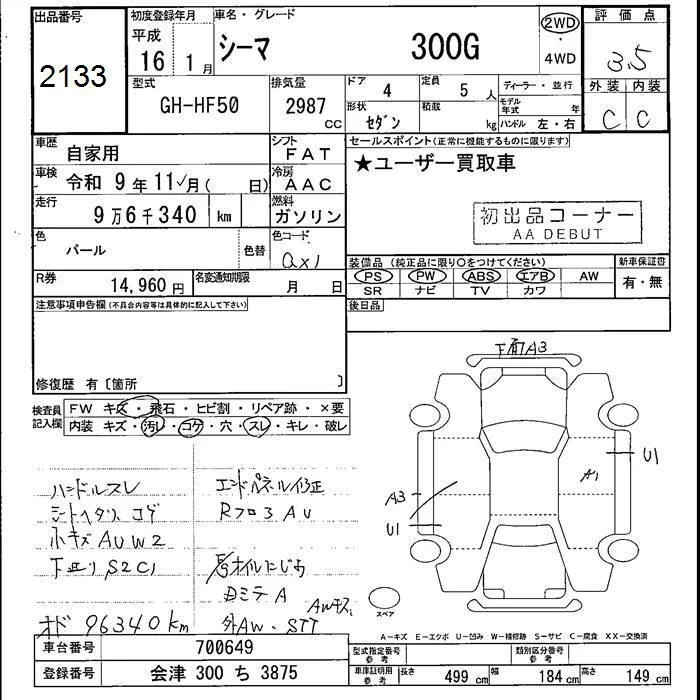 出品番号
2133
初度登録年月
平成
16 1月
車名・グレード
シーマ 300G
2WD
・
4WD
評価点
3.5
外装 内装
C C
型式
GH-HF50
排気量
2987
CC
ドア 4
定員 5 人
ディーラー・並行
形状 セダン
積載 kg
モデル年式 年
ハンドル 左・右
車歴 自家用
シフト FAT
車検 令和 9年 11月( 日)
冷房 AAC
走行 9万6千340 km
燃料 ガソリン
色 パール
色替
色コード QX1
R券 14,960円
名変通知期限 月 日
セールスポイント(正常に機能するものに限ります)
★ユーザー買取車
初出品コーナー
AA DEBUT
装備品 (純正品に限り○をつけてください)
新車保証書
PS PW ABS エアB AW
有・無
SR ナビ TV カワ
後日品
注意事項申告欄(不具合内容等は具体的に記入して下さい)
修復歴 有〔箇所 〕
検査員記入欄
FW キズ・飛石・ヒビ割・リペア跡・×要
内装 キズ・汚レ・コゲ・穴・スレ・キレ・破レ
ハンドルスレ
シートヘタリ、コゲ
小キズ AUW2
下回り S2C1
オド 96340km
エンドパネル修正
Rフロア AU
AWキズ
外AW・STT
下面A3
U1
A1
A3
U1
スペア
A-キズ E-エクボ U-凹み W-補修跡 S-サビ C-腐食 XX-交換済
車台番号 700649
登録番号 会津 300 ち 3875
型式指定番号 参考
類別区分番号 参考
車庫証明用 参考
長さ 499 cm
幅 184 cm
高さ 149 cm